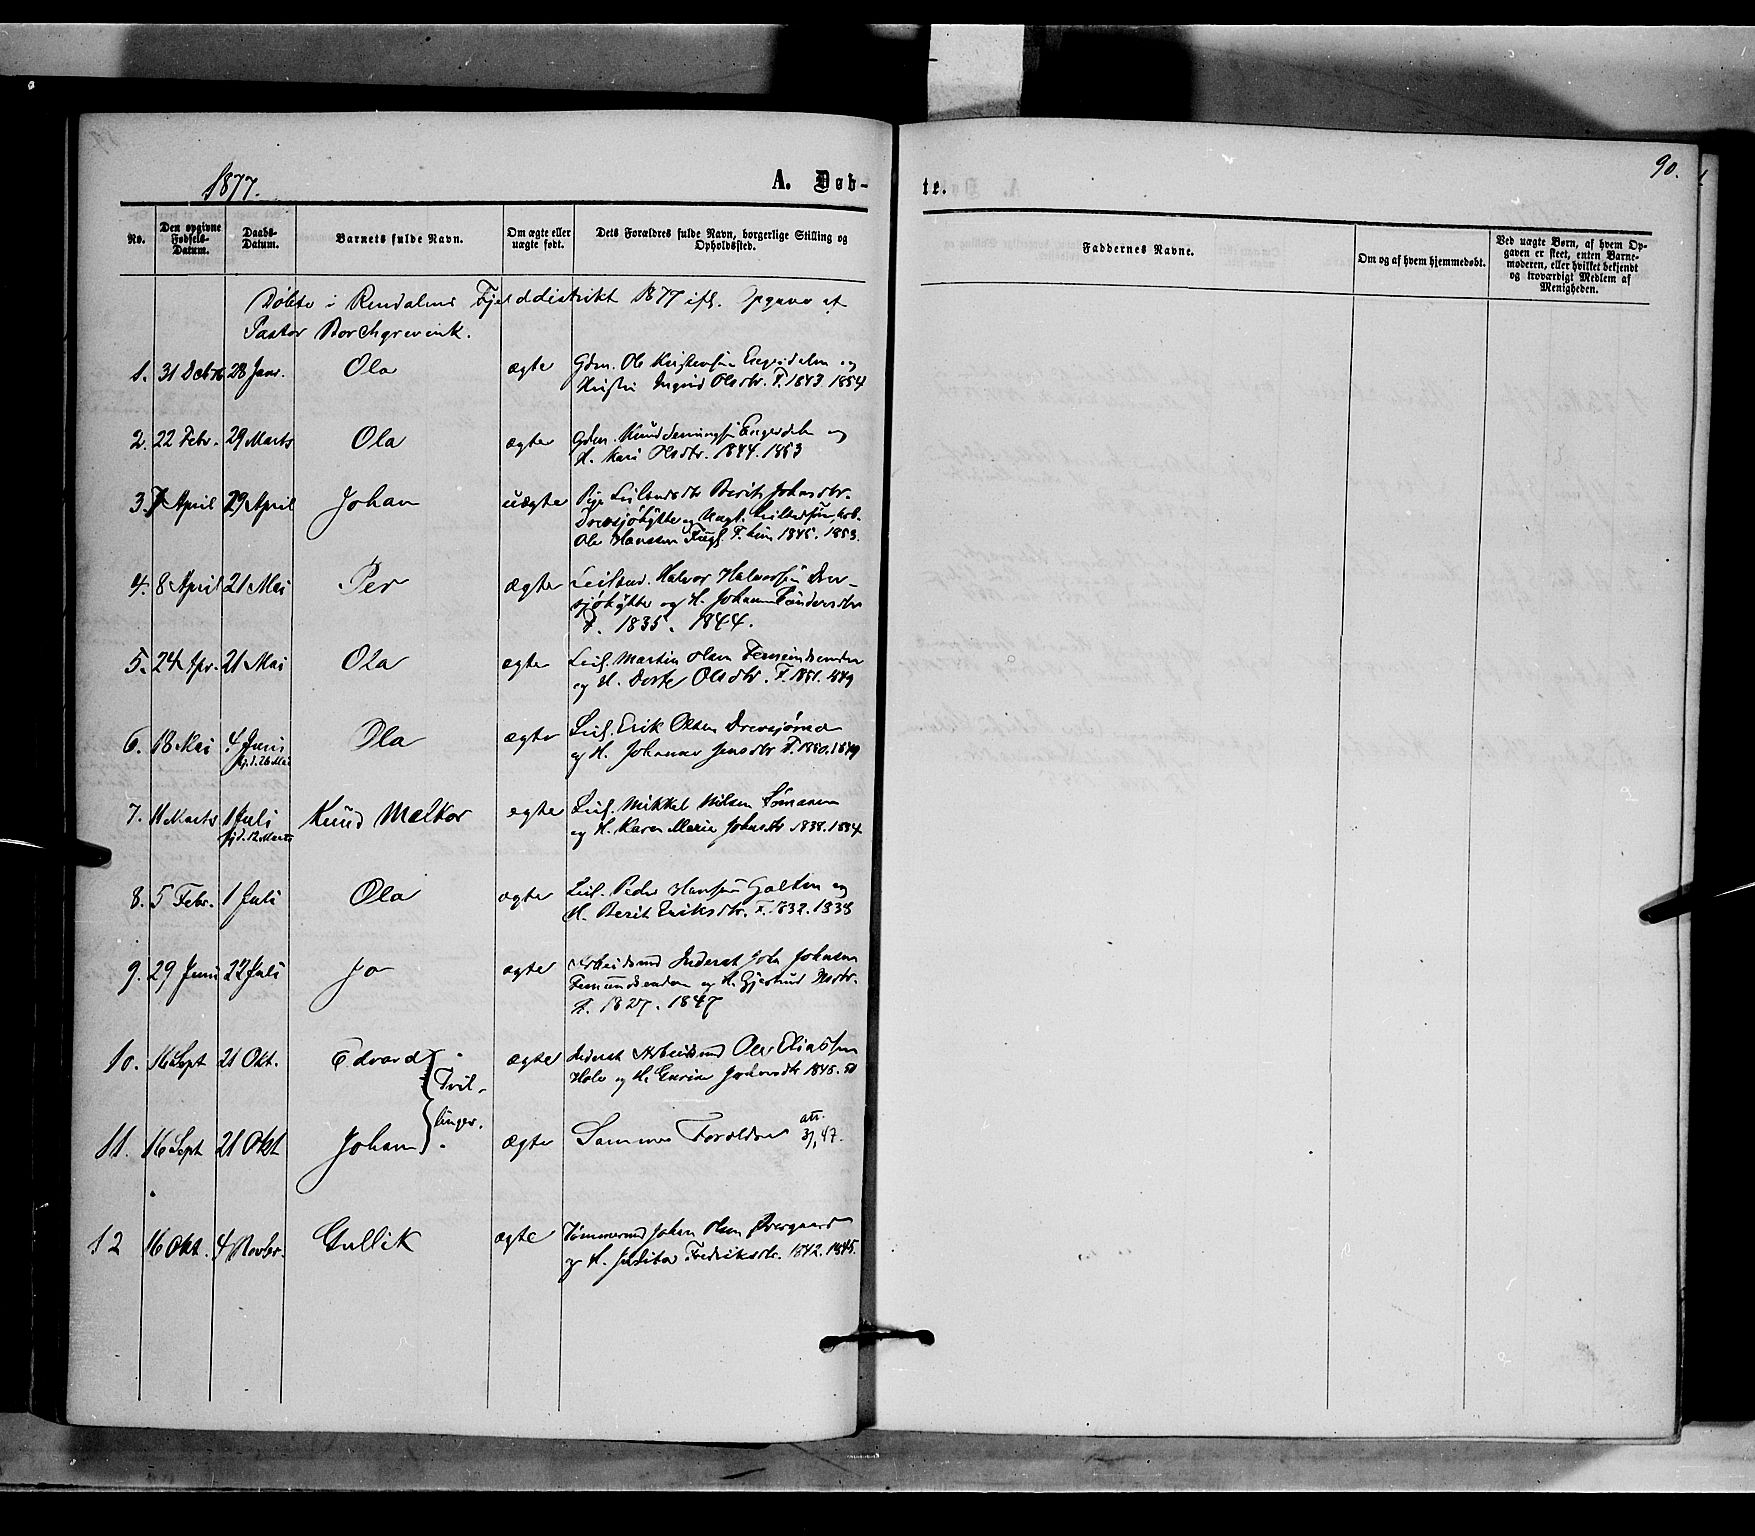 90.
1877.
A. Døb-
te.
No.
Den opgivne Fødsels-Datum.
Daabs-Datum.
Barnets fulde Navn.
Om ægte eller uægte født.
Dets Forældres fulde Navn, borgerlige Stilling og Opholdssted.
Faddernes Navne.
Om og af hvem hjemmedøbt.
Ved uægte Børn, af hvem Op-
gaven er skeet, enten Barne-
moderen, eller hvilket bekjendt
og troværdigt Medlem af
Menigheden.
Døbte i Rendalens Fjelddistrikt 1877 ifl. Opgave af
Pastor Borchgrevink.
1. 31 Decbr 76 28 Janr. Ola ægte Gdm. Ole Kristensen Engerdalen og
Kristi Ingrid Olsdtr. F. 1843 1854
2. 22 Febr. 29 Marts Ola ægte Gdm. Knud Engerdalen og
H. Kari Olsdtr. 1844. 1853
3. 7 April 29 April Johan uægte Pige Berit Johnsdtr.
Drevsjøhytte og Ungk.
Ole Hansen F. 1845. 1853.
4. 8 April 21 Mai Per ægte Leilænd. Halvor Halvorsen Drev-
sjøhytte og H. Johanne
F. 1835. 1844.
5. 24 Apr. 21 Mai Ola ægte Leil. Martin Olsen Femundsenden
og H. Dorte Olsdtr. F. 1851. 1849
6. 18 Mai 4 Juni Ola ægte Leil. Erik Olsen Drevsjømoen
hjd. 26 Mai og H. Johanne Jensdtr F. 1850. 1849
7. 11 Marts 1 Juli Knud Melkor ægte Leil. Mikkel Nilsen Sømaaen
hjd. 12 Marts og H. Karen Marie Johnsdtr 1838. 1834
8. 5 Febr. 1 Juli Ola ægte Leil. Peder Hansen Galten og
H. Berit Eriksdtr. F. 1832. 1838
9. 29 Juni 22 Juli Jo ægte Arbeidsmd Inderst John Johnsen
Femundsenden og H. Gjertrud
F. 1827. 1847
10. 16 Sept 21 Okt. Edvard ægte Inderst Arbeidsmd Ole Eliassen
Hole og H. Gurine 1848. 51
Tvil-
linger.
11. 16 Sept 21 Okt Johan ægte Samme Forældre
12 16 Okt. 4 Novbr. Gullik ægte Tømmermd Johan Olsen Øvergaard
og H. Fredriksdtr. 1842. 1845.